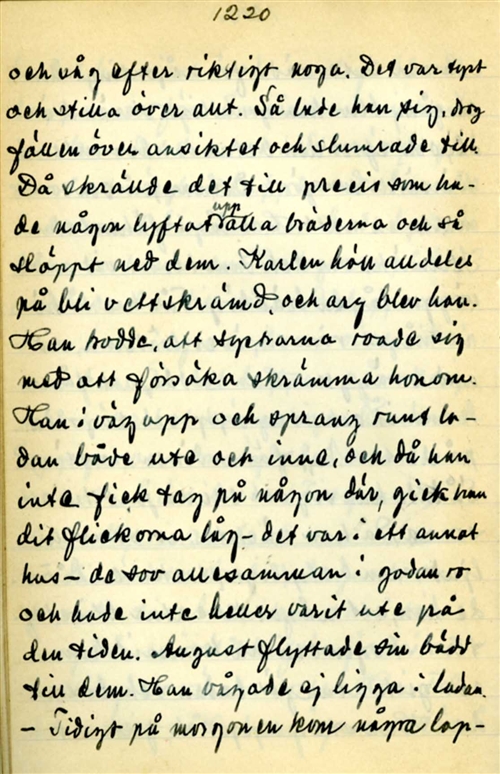 1220
och såg efter riktigt noga. Det var tyst
och stilla över allt. Så lade han sig, drog
fällen över ansiktet och slumrade till.
Då skrällde det till precis som ha-
de någon lyftat upp alla bräderna och så
släppt ned dem. Karlen höll alldeles
på bli vettskrämd, och arg blev han.
Han trodde, att systrarna roade sig
med att försöka skrämma honom.
Han i väg upp och sprang runt la-
dan både ute och inne, och då han
inte fick tag på någon där, gick han
dit flickorna låg - det var i ett annat
hus - de sov allesamman i godan ro
och hade inte heller varit ute på
den tiden. August flyttade sin bädd
till dem. Han vågade ej ligga i ladan.
- Tidigt på morgonen kom några lap-